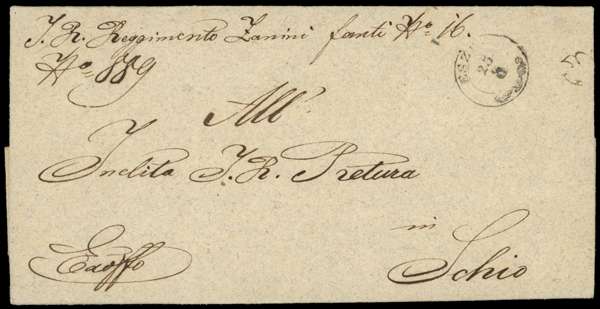 I. R. Reggimento Zanini fanti No. 16.
All'
Inclita I. R. Pretura
in
Schio
Exoffo